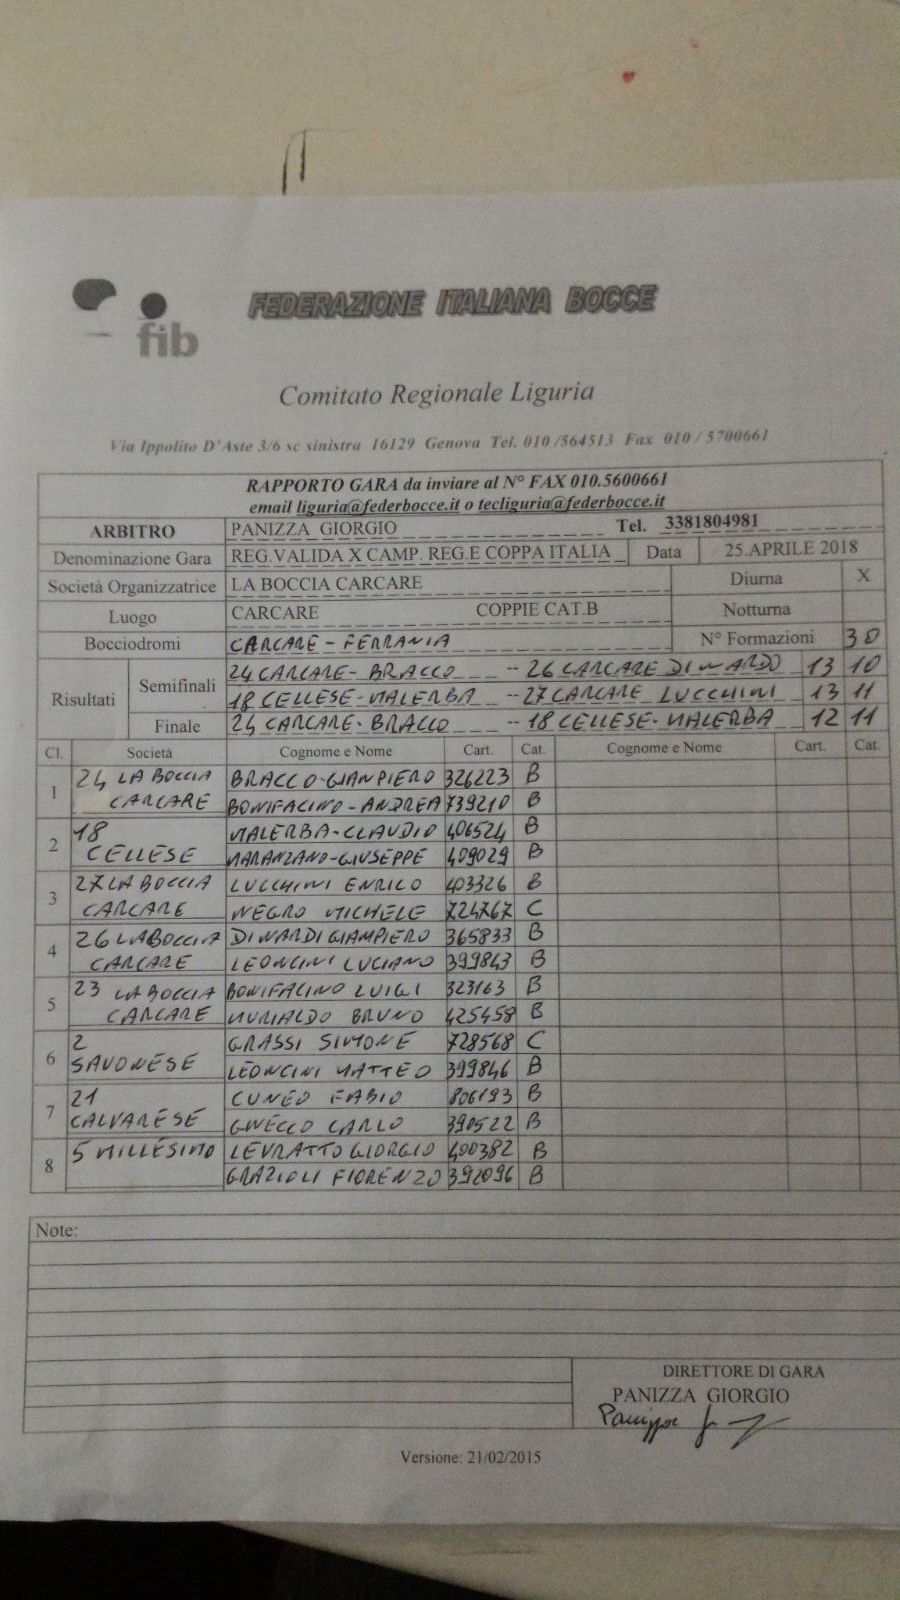 fib
FEDERAZIONE ITALIANA BOCCE
Comitato Regionale Liguria
Via Ippolito D'Aste 3/6 sc sinistra 16129 Genova Tel. 010 /564513 Fax 010 / 5700661
RAPPORTO GARA da inviare al N° FAX 010.5600661
email liguria@federbocce.it o tecliguria@federbocce.it
ARBITRO PANIZZA GIORGIO Tel. 3381804981
Denominazione Gara REG.VALIDA X CAMP. REG.E COPPA ITALIA Data 25.APRILE 2018
Società Organizzatrice LA BOCCIA CARCARE Diurna X
Luogo CARCARE COPPIE CAT.B Notturna
Bocciodromi CARCARE - FERRANIA N° Formazioni 30
Risultati Semifinali 24 CARCARE - BRACCO -- 26 CARCARE DI NARDO 13 10
18 CELLESE - MALERBA -- 27 CARCARE LUCCHINI 13 11
Finale 24 CARCARE - BRACCO -- 18 CELLESE - MALERBA 12 11
Cl. Società Cognome e Nome Cart. Cat. Cognome e Nome Cart. Cat.
1 24 LA BOCCIA CARCARE BRACCO - GIANPIERO 326223 B
BONIFACINO - ANDREA 739210 B
2 18 CELLESE MALERBA - CLAUDIO 406524 B
MARANZANO - GIUSEPPE 409029 B
3 27 LA BOCCIA CARCARE LUCCHINI ENRICO 403326 B
NEGRO MICHELE 724767 C
4 26 LA BOCCIA CARCARE DI NARDI GIAMPIERO 365833 B
LEONCINI LUCIANO 399843 B
5 23 LA BOCCIA CARCARE BONIFACINO LUIGI 323163 B
MURIALDO BRUNO 425458 B
6 2 SAVONESE GRASSI SIMONE 728568 C
LEONCINI MATTEO 399846 B
7 21 CALVARESE CUNEO FABIO 806193 B
GNECCO CARLO 390522 B
8 5 MILLESIMO LEVRATTO GIORGIO 400382 B
GRAZIOLI FIORENZO 392096 B
Note:
DIRETTORE DI GARA
PANIZZA GIORGIO
Versione: 21/02/2015